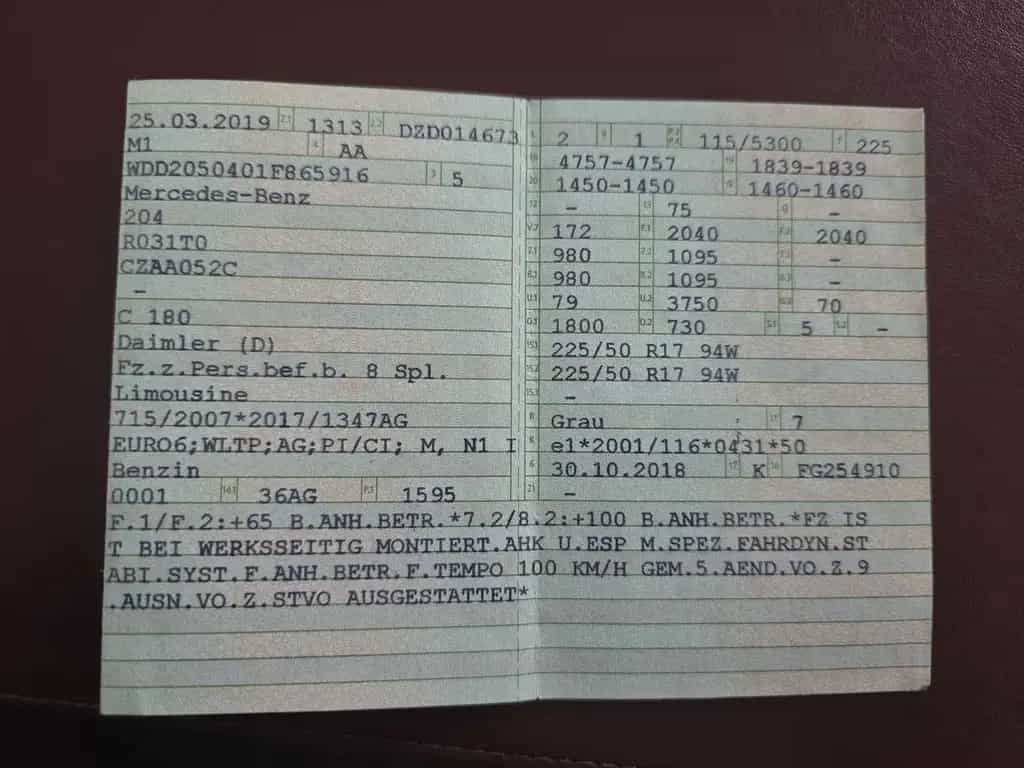 25.03.2019 2.1 1313 2.2 DZD014673
M1 4 AA
WDD2050401F865916 3 5
Mercedes-Benz
204
R031T0
CZAA052C
–
C 180
Daimler (D)
Fz.z.Pers.bef.b. 8 Spl.
Limousine
715/2007*2017/1347AG
EURO6;WLTP;AG;PI/CI; M, N1 I
Benzin
0001 14.1 36AG P.1 1595
L 2 9 1 P.2 P.4 115/5300 T 225
18 4757-4757 19 1839-1839
20 1450-1450 G 1460-1460
12 – 13 75 Q –
V.7 172 F.1 2040 F.2 2040
7.1 980 7.2 1095 7.3 –
8.1 980 8.2 1095 8.3 –
U.1 79 U.2 3750 U.3 70
O.1 1800 O.2 730 S.1 5 S.2 –
15.1 225/50 R17 94W
15.2 225/50 R17 94W
15.3 –
R Grau 11 7
K e1*2001/116*0431*50
6 30.10.2018 17 K 16 FG254910
21 –
F.1/F.2:+65 B.ANH.BETR.*7.2/8.2:+100 B.ANH.BETR.*FZ IS
T BEI WERKSSEITIG MONTIERT.AHK U.ESP M.SPEZ.FAHRDYN.ST
ABI.SYST.F.ANH.BETR.F.TEMPO 100 KM/H GEM.5.AEND.VO.Z.9
.AUSN.VO.Z.STVO AUSGESTATTET*